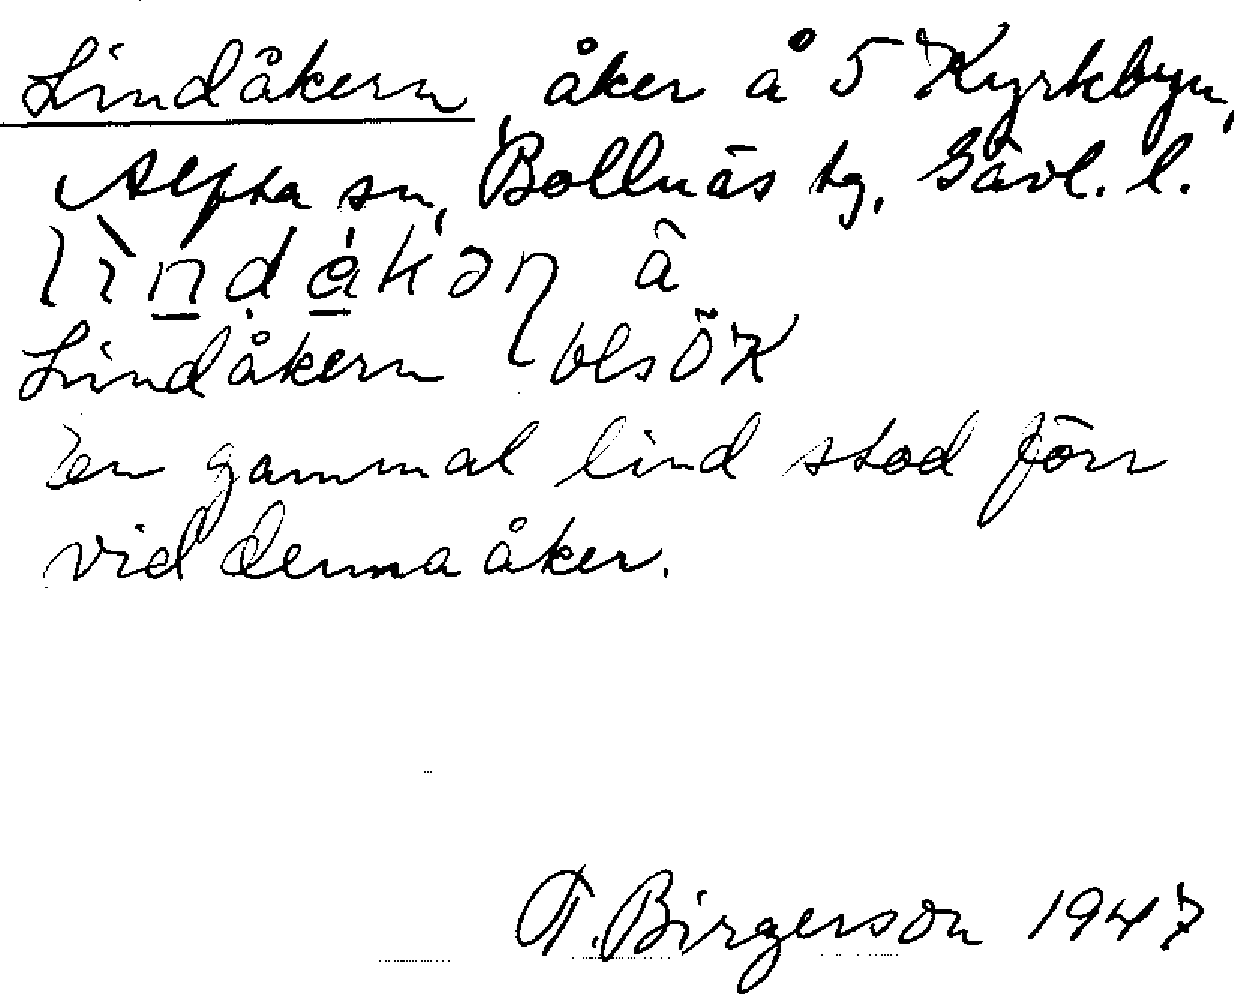 Lindåkern, åker å 5 Kyrkbyn,
Alfta sn, Bollnäs tg, Gävl. l.
lìndåkən å
Lindåkern
En gammal lind stod förr
vid denna åker.
T. Birgerson 1947